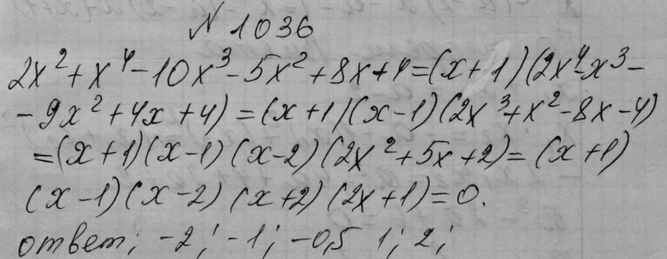 № 1036
2x² + x⁴ - 10x³ - 5x² + 8x + 4 = (x + 1)(2x⁴ - x³ -
- 9x² + 4x + 4) = (x + 1)(x - 1)(2x³ + x² - 8x - 4)
= (x + 1)(x - 1)(x - 2)(2x² + 5x + 2) = (x + 1)
(x - 1)(x - 2)(x + 2)(2x + 1) = 0.
ответ; -2; -1; -0,5 1; 2;